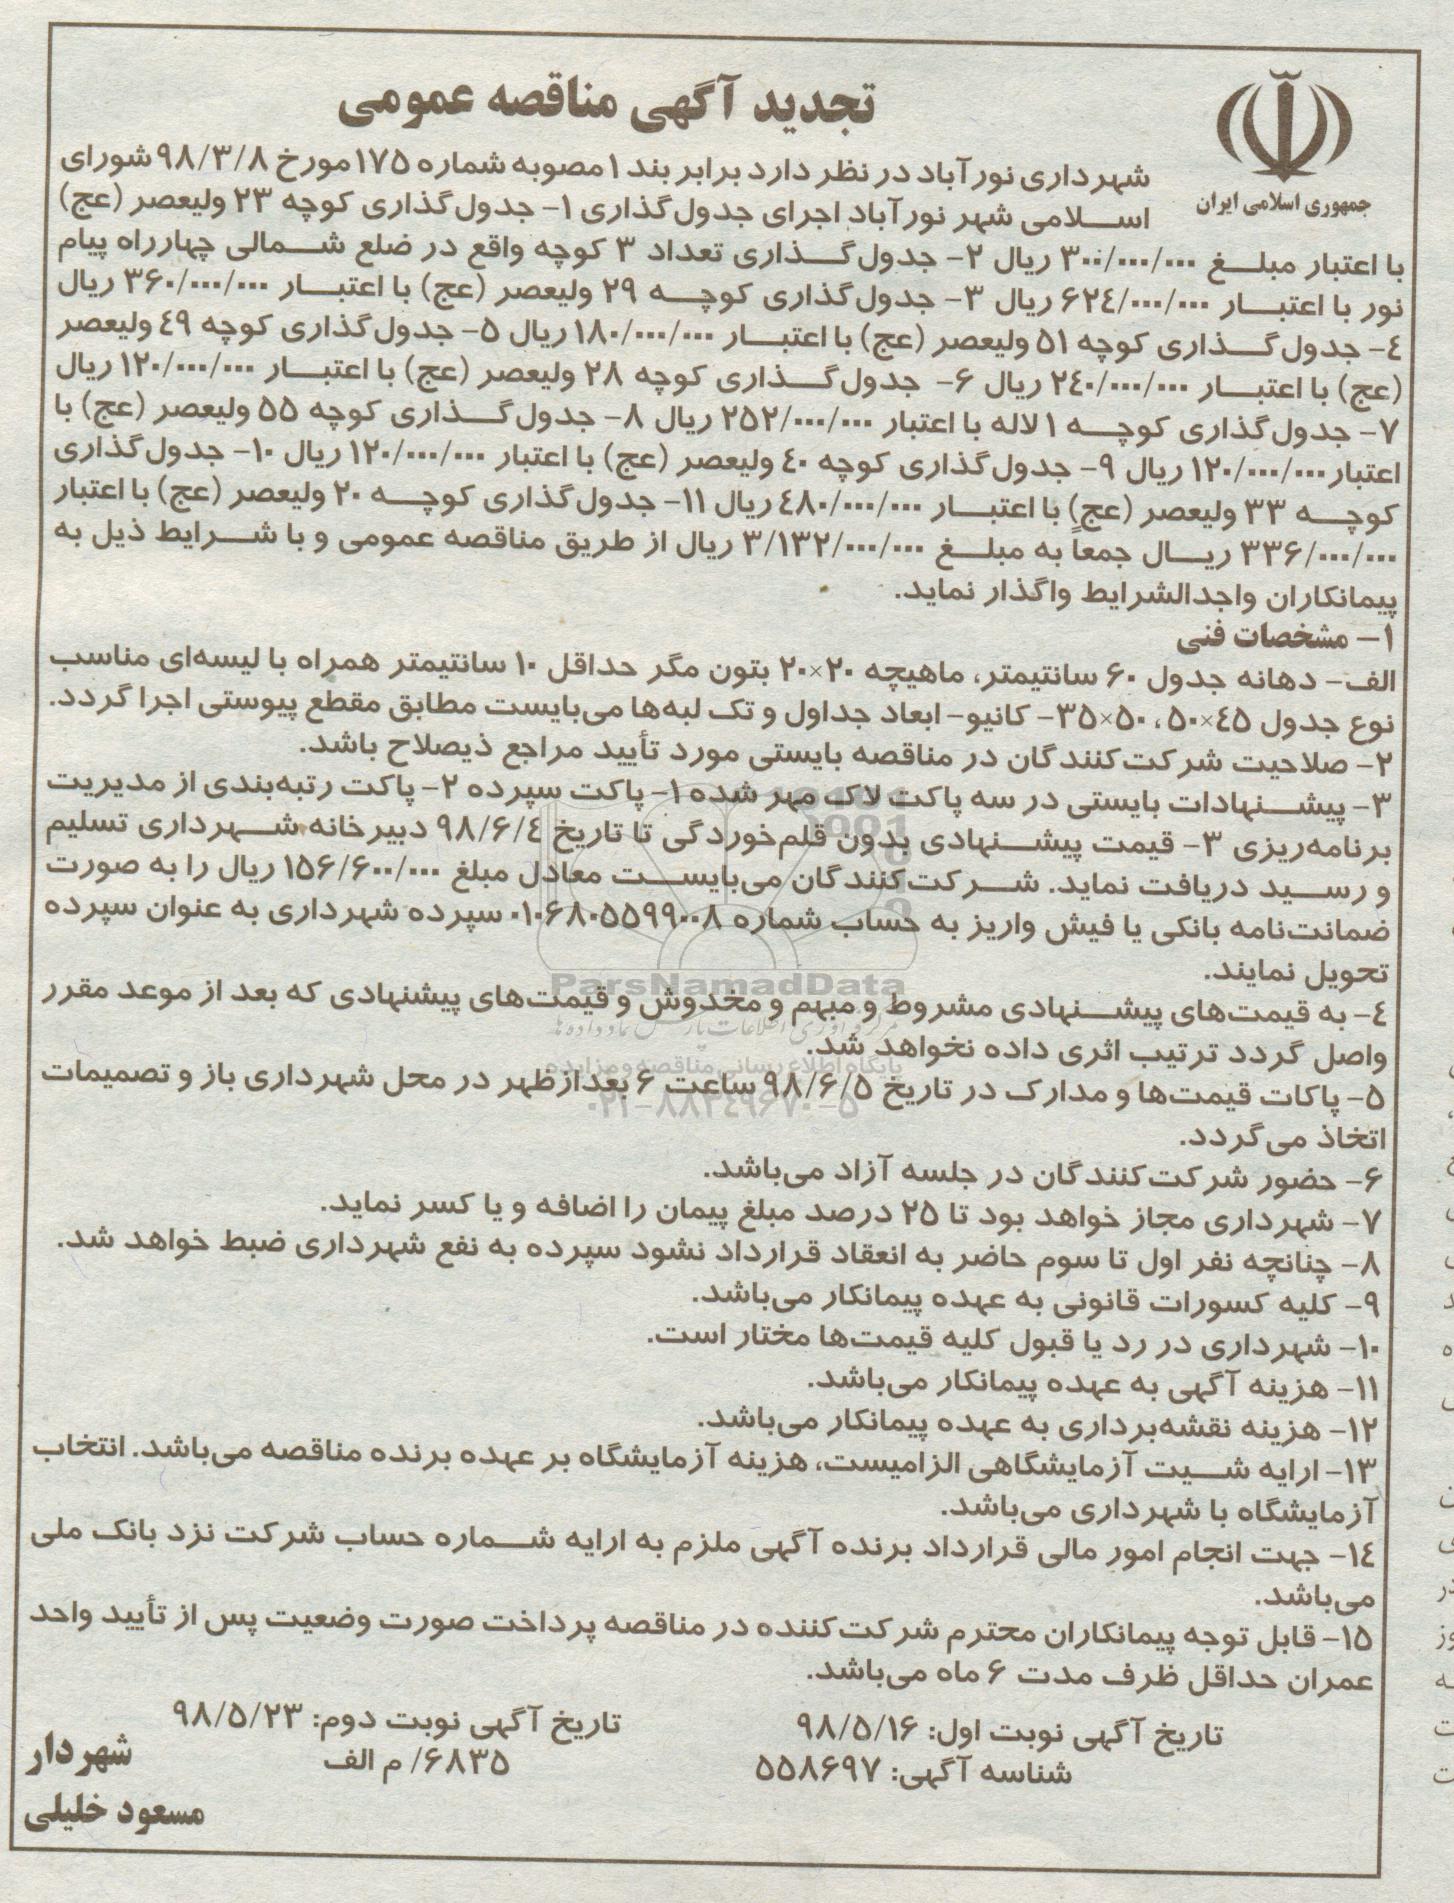 جمهوری اسلامی ایران
تجدید آگهی مناقصه عمومی
شهرداری نورآباد در نظر دارد برابر بند ۱ مصوبه شماره ۱۷۵ مورخ ۹۸/۳/۸ شورای
اسلامی شهر نورآباد اجرای جدول‌گذاری ۱- جدول‌گذاری کوچه ۲۳ ولیعصر (عج)
با اعتبار مبلغ ۳۰۰/۰۰۰/۰۰۰ ریال ۲- جدول‌گذاری تعداد ۳ کوچه واقع در ضلع شمالی چهارراه پیام
نور با اعتبار ۶۲۴/۰۰۰/۰۰۰ ریال ۳- جدول‌گذاری کوچه ۲۹ ولیعصر (عج) با اعتبار ۳۶۰/۰۰۰/۰۰۰ ریال
۴- جدول‌گذاری کوچه ۵۱ ولیعصر (عج) با اعتبار ۱۸۰/۰۰۰/۰۰۰ ریال ۵- جدول‌گذاری کوچه ۴۹ ولیعصر
(عج) با اعتبار ۲۴۰/۰۰۰/۰۰۰ ریال ۶- جدول‌گذاری کوچه ۲۸ ولیعصر (عج) با اعتبار ۱۲۰/۰۰۰/۰۰۰ ریال
۷- جدول‌گذاری کوچه ۱ لاله با اعتبار ۲۵۲/۰۰۰/۰۰۰ ریال ۸- جدول‌گذاری کوچه ۵۵ ولیعصر (عج) با
اعتبار ۱۲۰/۰۰۰/۰۰۰ ریال ۹- جدول‌گذاری کوچه ۴۰ ولیعصر (عج) با اعتبار ۱۲۰/۰۰۰/۰۰۰ ریال ۱۰- جدول‌گذاری
کوچه ۳۳ ولیعصر (عج) با اعتبار ۴۸۰/۰۰۰/۰۰۰ ریال ۱۱- جدول‌گذاری کوچه ۲۰ ولیعصر (عج) با اعتبار
۳۳۶/۰۰۰/۰۰۰ ریال جمعاً به مبلغ ۳/۱۳۲/۰۰۰/۰۰۰ ریال از طریق مناقصه عمومی و با شرایط ذیل به
پیمانکاران واجدالشرایط واگذار نماید.
۱- مشخصات فنی
الف- دهانه جدول ۶۰ سانتیمتر، ماهیچه ۲۰×۲۰ بتون مگر حداقل ۱۰ سانتیمتر همراه با لیسه‌ای مناسب
نوع جدول ۴۵×۵۰، ۵۰×۳۵- کانیو- ابعاد جداول و تک لبه‌ها می‌بایست مطابق مقطع پیوستی اجرا گردد.
۲- صلاحیت شرکت‌کنندگان در مناقصه بایستی مورد تأیید مراجع ذیصلاح باشد.
۳- پیشنهادات بایستی در سه پاکت لاک مهر شده ۱- پاکت سپرده ۲- پاکت رتبه‌بندی از مدیریت
برنامه‌ریزی ۳- قیمت پیشنهادی بدون قلم‌خوردگی تا تاریخ ۹۸/۶/۴ دبیرخانه شهرداری تسلیم
و رسید دریافت نماید. شرکت‌کنندگان می‌بایست معادل مبلغ ۱۵۶/۶۰۰/۰۰۰ ریال را به صورت
ضمانت‌نامه بانکی یا فیش واریز به حساب شماره ۰۱۰۶۸۰۵۵۹۹۰۰۸ سپرده شهرداری به عنوان سپرده
تحویل نمایند.
ParsNamadData
۴- به قیمت‌های پیشنهادی مشروط و مبهم و مخدوش و قیمت‌های پیشنهادی که بعد از موعد مقرر
مرکز فرآوری اطلاعات پارس نماد داده ها
واصل گردد ترتیب اثری داده نخواهد شد.
پایگاه اطلاع رسانی مناقصه و مزایده
۵- پاکات قیمت‌ها و مدارک در تاریخ ۹۸/۶/۵ ساعت ۶ بعدازظهر در محل شهرداری باز و تصمیمات
۰۲۱-۸۸۳۴۹۶۷۰-۵
اتخاذ می‌گردد.
۶- حضور شرکت‌کنندگان در جلسه آزاد می‌باشد.
۷- شهرداری مجاز خواهد بود تا ۲۵ درصد مبلغ پیمان را اضافه و یا کسر نماید.
۸- چنانچه نفر اول تا سوم حاضر به انعقاد قرارداد نشود سپرده به نفع شهرداری ضبط خواهد شد.
۹- کلیه کسورات قانونی به عهده پیمانکار می‌باشد.
۱۰- شهرداری در رد یا قبول کلیه قیمت‌ها مختار است.
۱۱- هزینه آگهی به عهده پیمانکار می‌باشد.
۱۲- هزینه نقشه‌برداری به عهده پیمانکار می‌باشد.
۱۳- ارایه شیت آزمایشگاهی الزامیست، هزینه آزمایشگاه بر عهده برنده مناقصه می‌باشد. انتخاب
آزمایشگاه با شهرداری می‌باشد.
۱۴- جهت انجام امور مالی قرارداد برنده آگهی ملزم به ارایه شماره حساب شرکت نزد بانک ملی
می‌باشد.
۱۵- قابل توجه پیمانکاران محترم شرکت‌کننده در مناقصه پرداخت صورت وضعیت پس از تأیید واحد
عمران حداقل ظرف مدت ۶ ماه می‌باشد.
تاریخ آگهی نوبت اول: ۹۸/۵/۱۶
تاریخ آگهی نوبت دوم: ۹۸/۵/۲۳
شناسه آگهی: ۵۵۸۶۹۷
۶۸۳۵/ م الف
شهردار
مسعود خلیلی